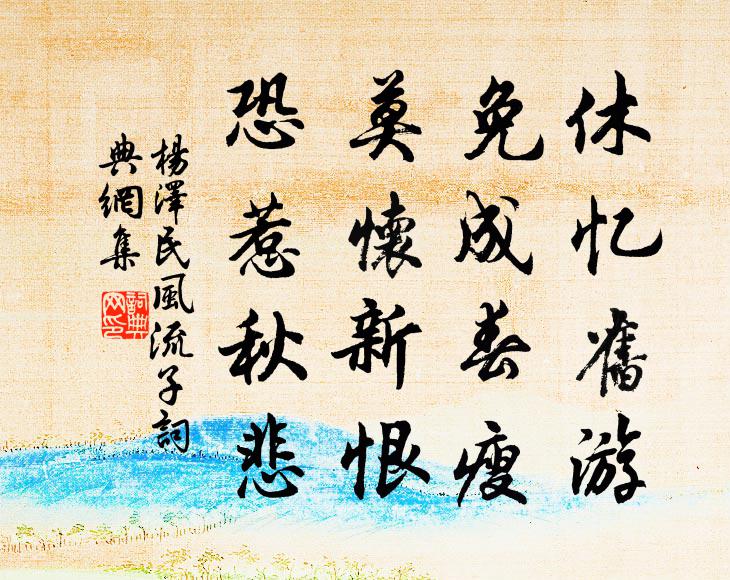 休忆舊游
免成春瘦
莫懷新恨
恐惹秋悲
楊澤民風流子詞
典網集
詞典网印